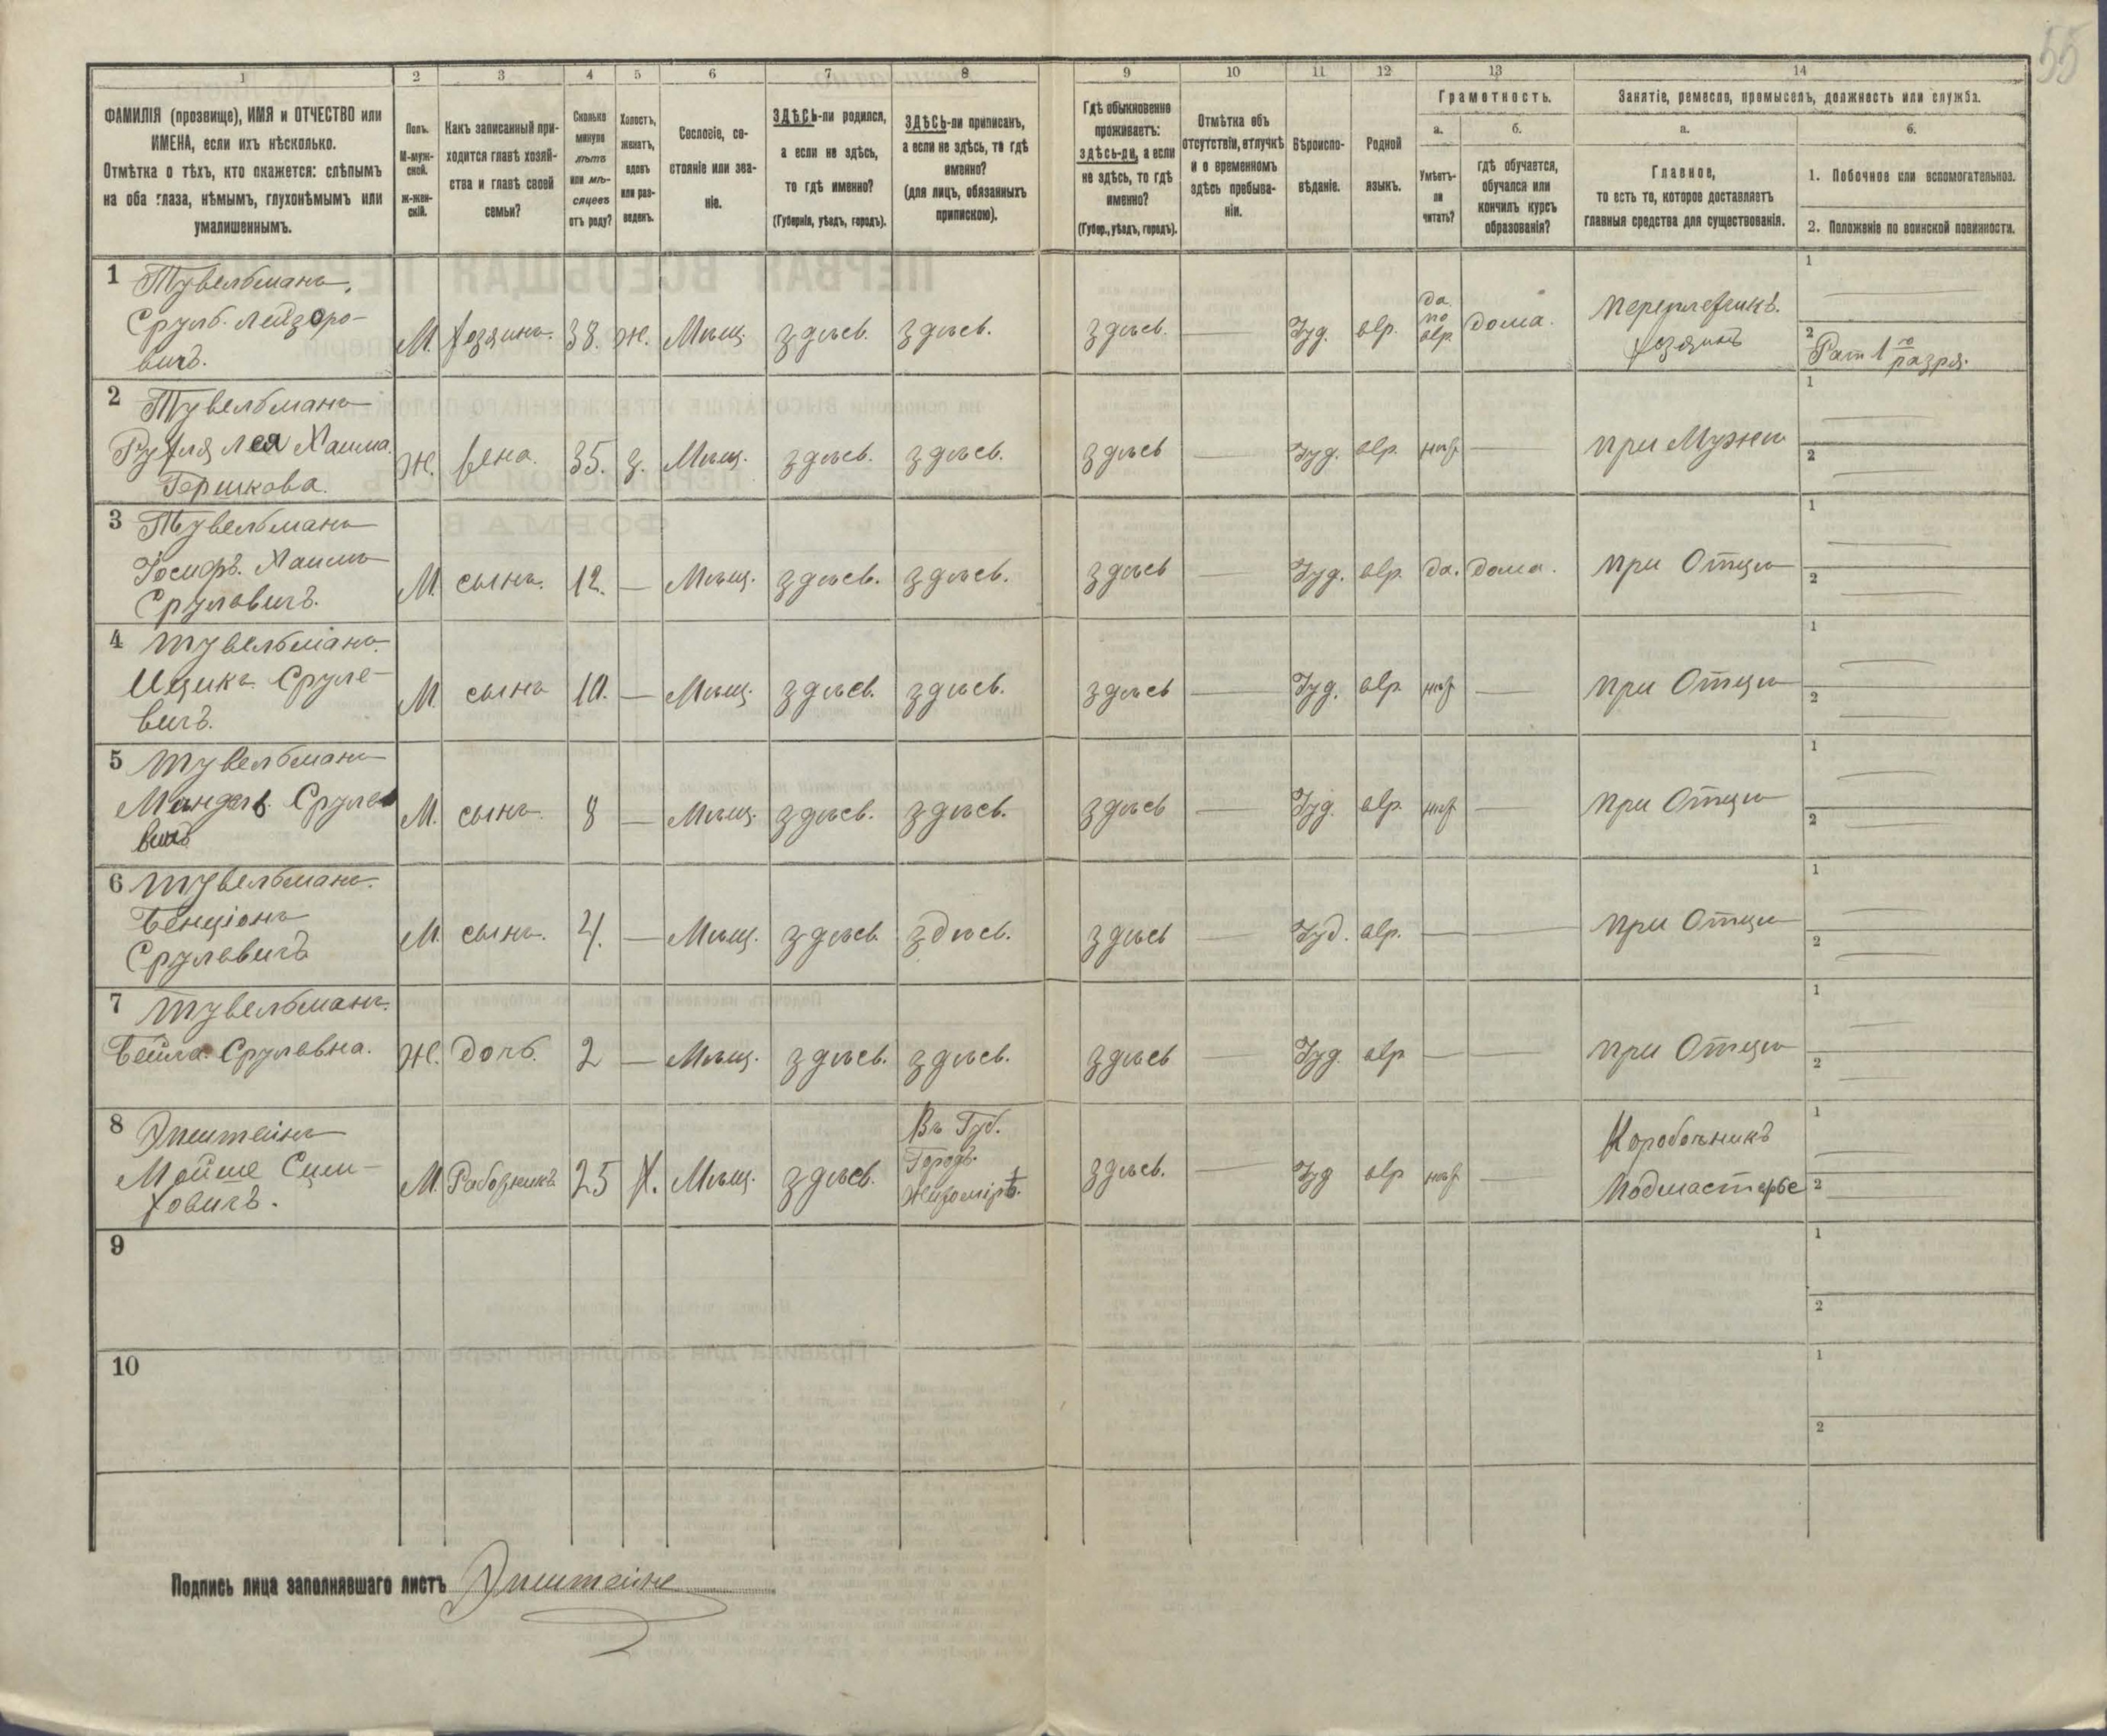 55
1 2 3 4 5 6 7 8 9 10 11 12 13 14
ФАМИЛІЯ (прозвище), ИМЯ и ОТЧЕСТВО или
ИМЕНА, если ихъ нѣсколько.
Отмѣтка о тѣхъ, кто окажется: слѣпымъ
на оба глаза, нѣмымъ, глухонѣмымъ или
умалишеннымъ.
Полъ.
М-муж-
ской.
ж-жен-
скій.
Какъ записанный при-
ходится главѣ хозяй-
ства и главѣ своей
семьи?
Сколько
минуло
лѣтъ
или мѣ-
сяцевъ
отъ роду?
Холостъ,
женатъ,
вдовъ
или раз-
веденъ.
Сословіе, со-
стояніе или зва-
ніе.
ЗДѢСЬ-ли родился,
а если не здѣсь,
то гдѣ именно?
(Губернія, уѣздъ, городъ).
ЗДѢСЬ-ли приписанъ,
а если не здѣсь, то гдѣ
именно?
(для лицъ, обязанныхъ
припискою).
Гдѣ обыкновенно
проживаетъ:
здѣсь-ли, а если
не здѣсь, то гдѣ
именно?
(Губер., уѣздъ, городъ).
Отмѣтка объ
отсутствіи, отлучкѣ
и о временномъ
здѣсь пребыва-
ніи.
Вѣроиспо-
вѣданіе.
Родной
языкъ.
Грамотность.
а.
Умѣетъ-
ли
читать?
б.
гдѣ обучается,
обучался или
кончилъ курсъ
образованія?
Занятіе, ремесло, промыселъ, должность или служба.
а.
Главное,
то есть то, которое доставляетъ
главныя средства для существованія.
б.
1. Побочное или вспомогательное.
2. Положеніе по воинской повинности.
1 Тувельманъ
Сруль Лейзоро-
вичъ.
М. Хозяинъ. 38. Ж. Мѣщ. здѣсь. здѣсь. здѣсь. Іуд. евр.
да
по
евр.
дома.
Переплетчикъ.
хозяинъ
1
2 Рат 1го разря.
2 Тувельманъ
Рухля Лея Хаима
Гершкова.
Ж. Жена. 35. З. Мѣщ. здѣсь. здѣсь. здѣсь Іуд. евр. нѣт при Мужѣ
1
2
3 Тувельманъ
Іосифъ Хаимъ
Срулевичъ.
М. сынъ. 12. — Мѣщ. здѣсь. здѣсь. здѣсь Іуд. евр. да. дома. при Отцѣ
1
2
4 Тувельманъ
Ицикъ Сруле-
вичъ.
М. сынъ 10. — Мѣщ. здѣсь. здѣсь. здѣсь Іуд. евр. нѣт при Отцѣ
1
2
5 Тувельманъ
Мендель Сруле
вичъ
М. сынъ 8 — Мѣщ. здѣсь. здѣсь. здѣсь Іуд. евр. нѣт при Отцѣ
1
2
6 Тувельманъ.
Бенціонъ
Срулевичъ
М. сынъ. 4. — Мѣщ. здѣсь здѣсь. здѣсь Іуд. евр. — — при Отцѣ
1
2
7 Тувельманъ.
Бейла Срулевна.
Ж. Дочь. 2 — Мѣщ. здѣсь. здѣсь. здѣсь Іуд. евр — — при Отцѣ
1
2
8 Эпштейнъ
Мойше Сим-
ховичъ.
М. Работникъ 25 Х. Мѣщ. здѣсь.
Въ Губ.
Городъ.
Житомірѣ.
здѣсь. Іуд евр нѣт
Коробочникъ
Подмастерье
1
2
9
1
2
10
1
2
Подпись лица заполнявшаго листъ Эпштейнъ